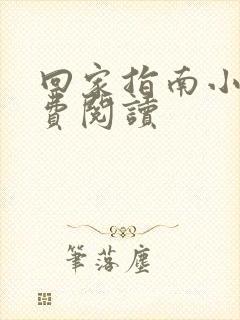 回家指南小
費閱讀
筆落塵